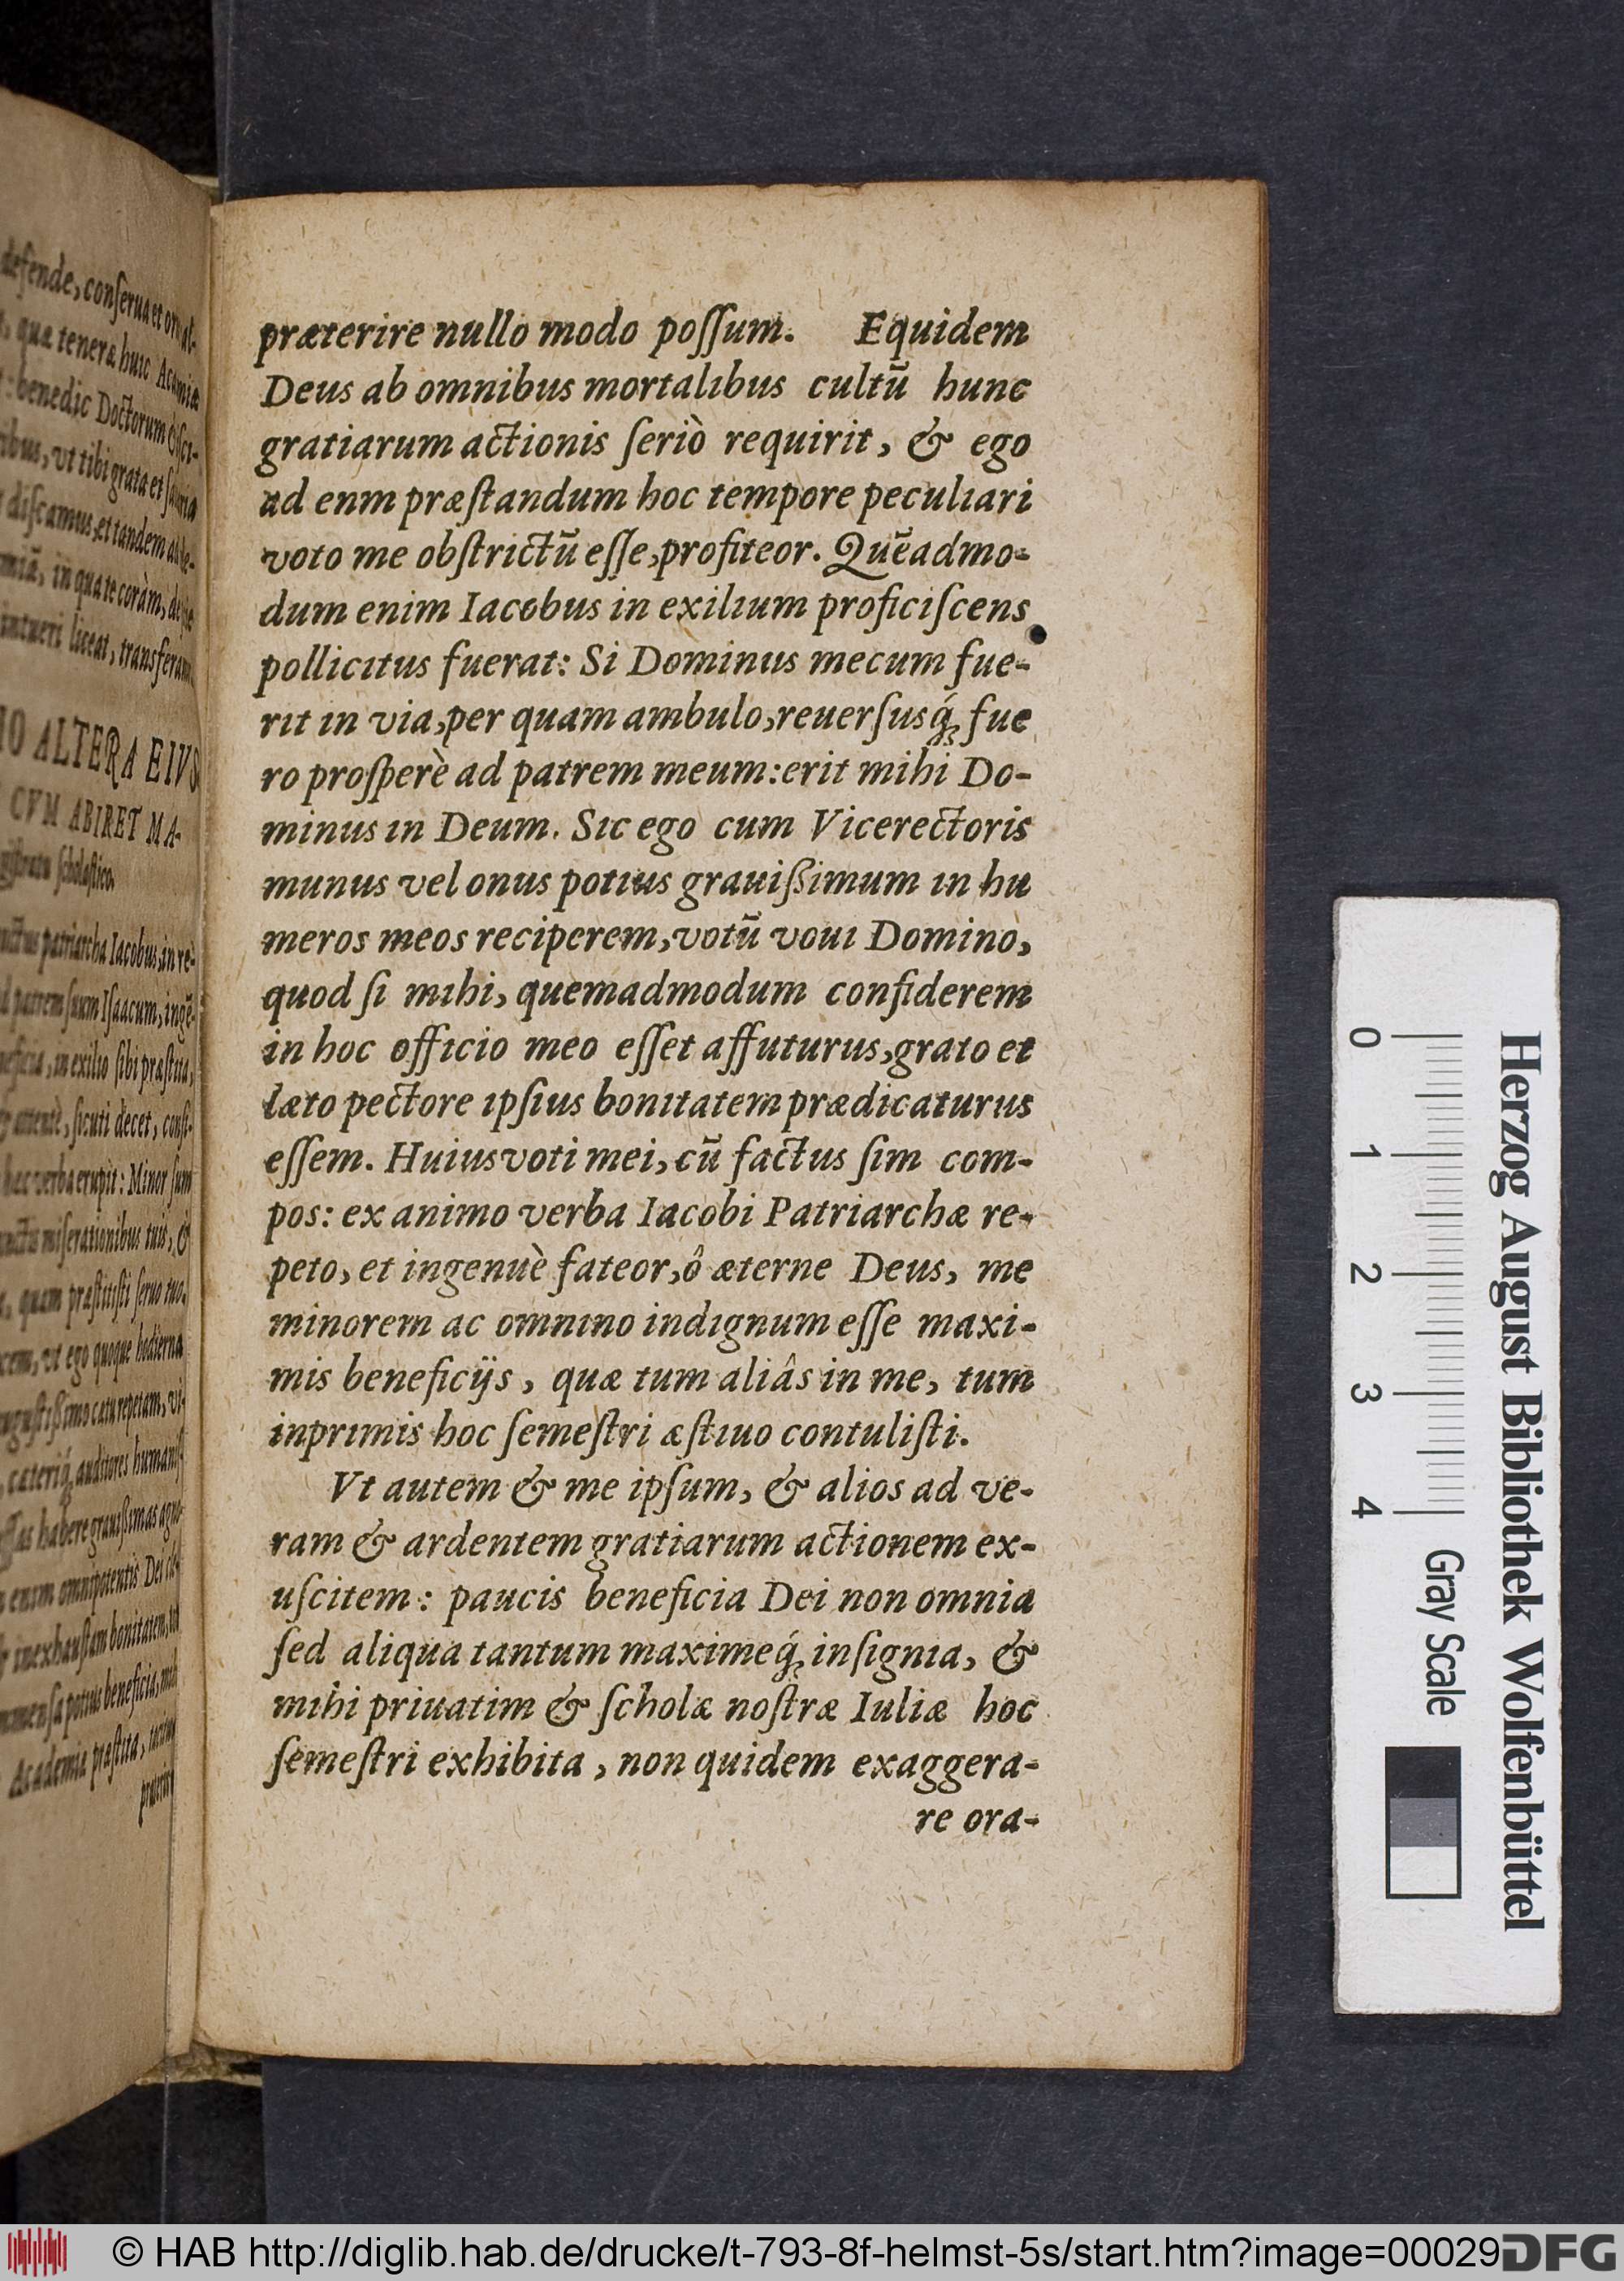 defende, conſerua et orna
quæ teneræ huic Acamiæ
benedic Doctorum
vt tibi grata et
diſcamus, et tandem
in qua te coràm,
liceat, transferam
ALTERA EIVS
CVM ABIRET MA-
ſcholaſtico.
patriarcha Iacobus, in re-
patrem ſuum Iſaacum, ingē-
in exilio ſibi præſtita,
attentè, ſicuti decet, conſi-
verba erupit: Minor ſum
miſerationibus tuis, &
quam præſtitiſti ſeruo tuo.
vt ego quoque hodierna
cætu repetam, vi-
auditores humaniſ-
habere grauiſsimas
enim omnipotentis Dei
inexhauſtam bonitatem,
potius beneficia,
Academiæ præſtita,
præterire nullo modo poſſum. Equidem
Deus ab omnibus mortalibus cultū hunc
gratiarum actionis ſeriò requirit, & ego
ad enm præſtandum hoc tempore peculiari
voto me obſtrictū eſſe, profiteor. Quēadmo-
dum enim Iacobus in exilium proficiſcens
pollicitus fuerat: Si Dominus mecum fue-
rit in via, per quam ambulo, reuerſusq́; fue
ro proſperè ad patrem meum: erit mihi Do-
minus in Deum. Sic ego cum Vicerectoris
munus vel onus potius grauißimum in hu
meros meos reciperem, votū voui Domino,
quod ſi mihi, quemadmodum confiderem
in hoc officio meo eſſet affuturus, grato et
læto pectore ipſius bonitatem prædicaturus
eſſem. Huius voti mei, cū factus ſim com-
pos: ex animo verba Iacobi Patriarchæ re-
peto, et ingenuè fateor, ô æterne Deus, me
minorem ac omnino indignum eſſe maxi-
mis beneficijs, quæ tum aliâs in me, tum
inprimis hoc ſemeſtri æſtiuo contuliſti.
Vt autem & me ipſum, & alios ad ve-
ram & ardentem gratiarum actionem ex-
uſcitem: paucis beneficia Dei non omnia
ſed aliqua tantum maximeq́; inſignia, &
mihi priuatim & ſcholæ noſtræ Iuliæ hoc
ſemeſtri exhibita, non quidem exaggera-
re ora-
Herzog August Bibliothek Wolfenbüttel
0 1 2 3 4 Gray Scale
© HAB http://diglib.hab.de/drucke/t-793-8f-helmst-5s/start.htm?image=00029
DFG